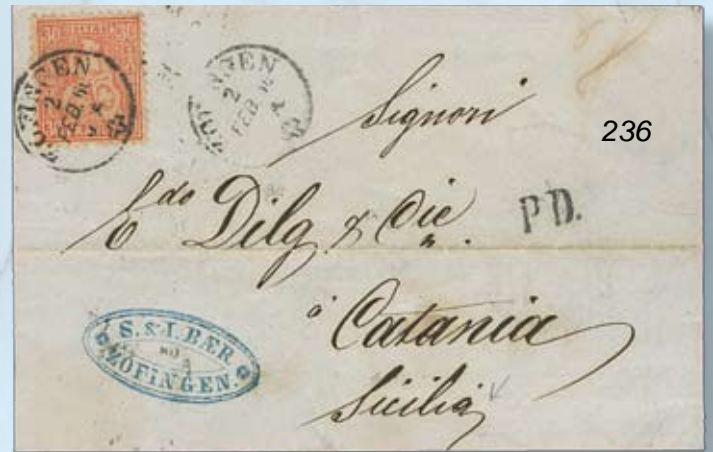 30 30
ZOFINGEN
2
FEB.
ZOFINGEN
2
FEB.
Signori
236
Edo Dilg & Cie
P.D.
à Catania
Sicilia
S. & I. BÆR
ZOFINGEN.